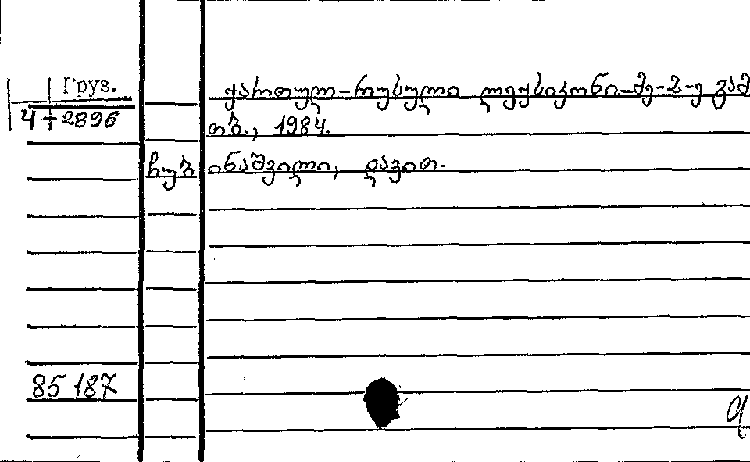 Груз.
4+2896
ქართულ-რუსული ლექსიკონი.-მე-2-ე გამ
თბ., 1984.
ჩუბინაშვილი, დავით.
85 187